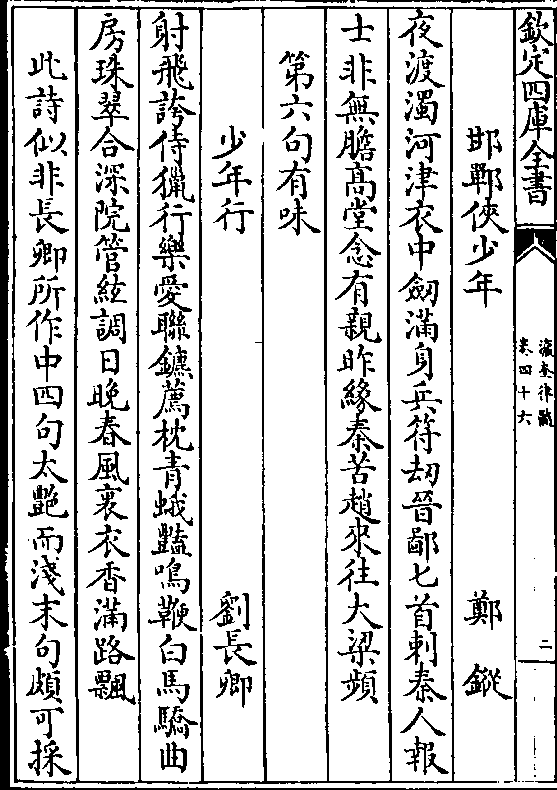 欽定四庫全書
瀛奎律髓
卷四十六
二
邯鄲俠少年 鄭鏦
夜渡濁河津衣中劒滿身兵符刼晉鄙匕首刺秦人報
士非無膽髙堂念有親昨緣秦苦趙來往大梁頻
第六句有味
少年行 劉長卿
射飛誇侍獵行樂愛聯鑣薦枕青蛾豔鳴鞭白馬驕曲
房珠翠合深院管絃調日晚春風裏衣香滿路飄
此詩似非長卿所作中四句太艷而淺末句頗可採